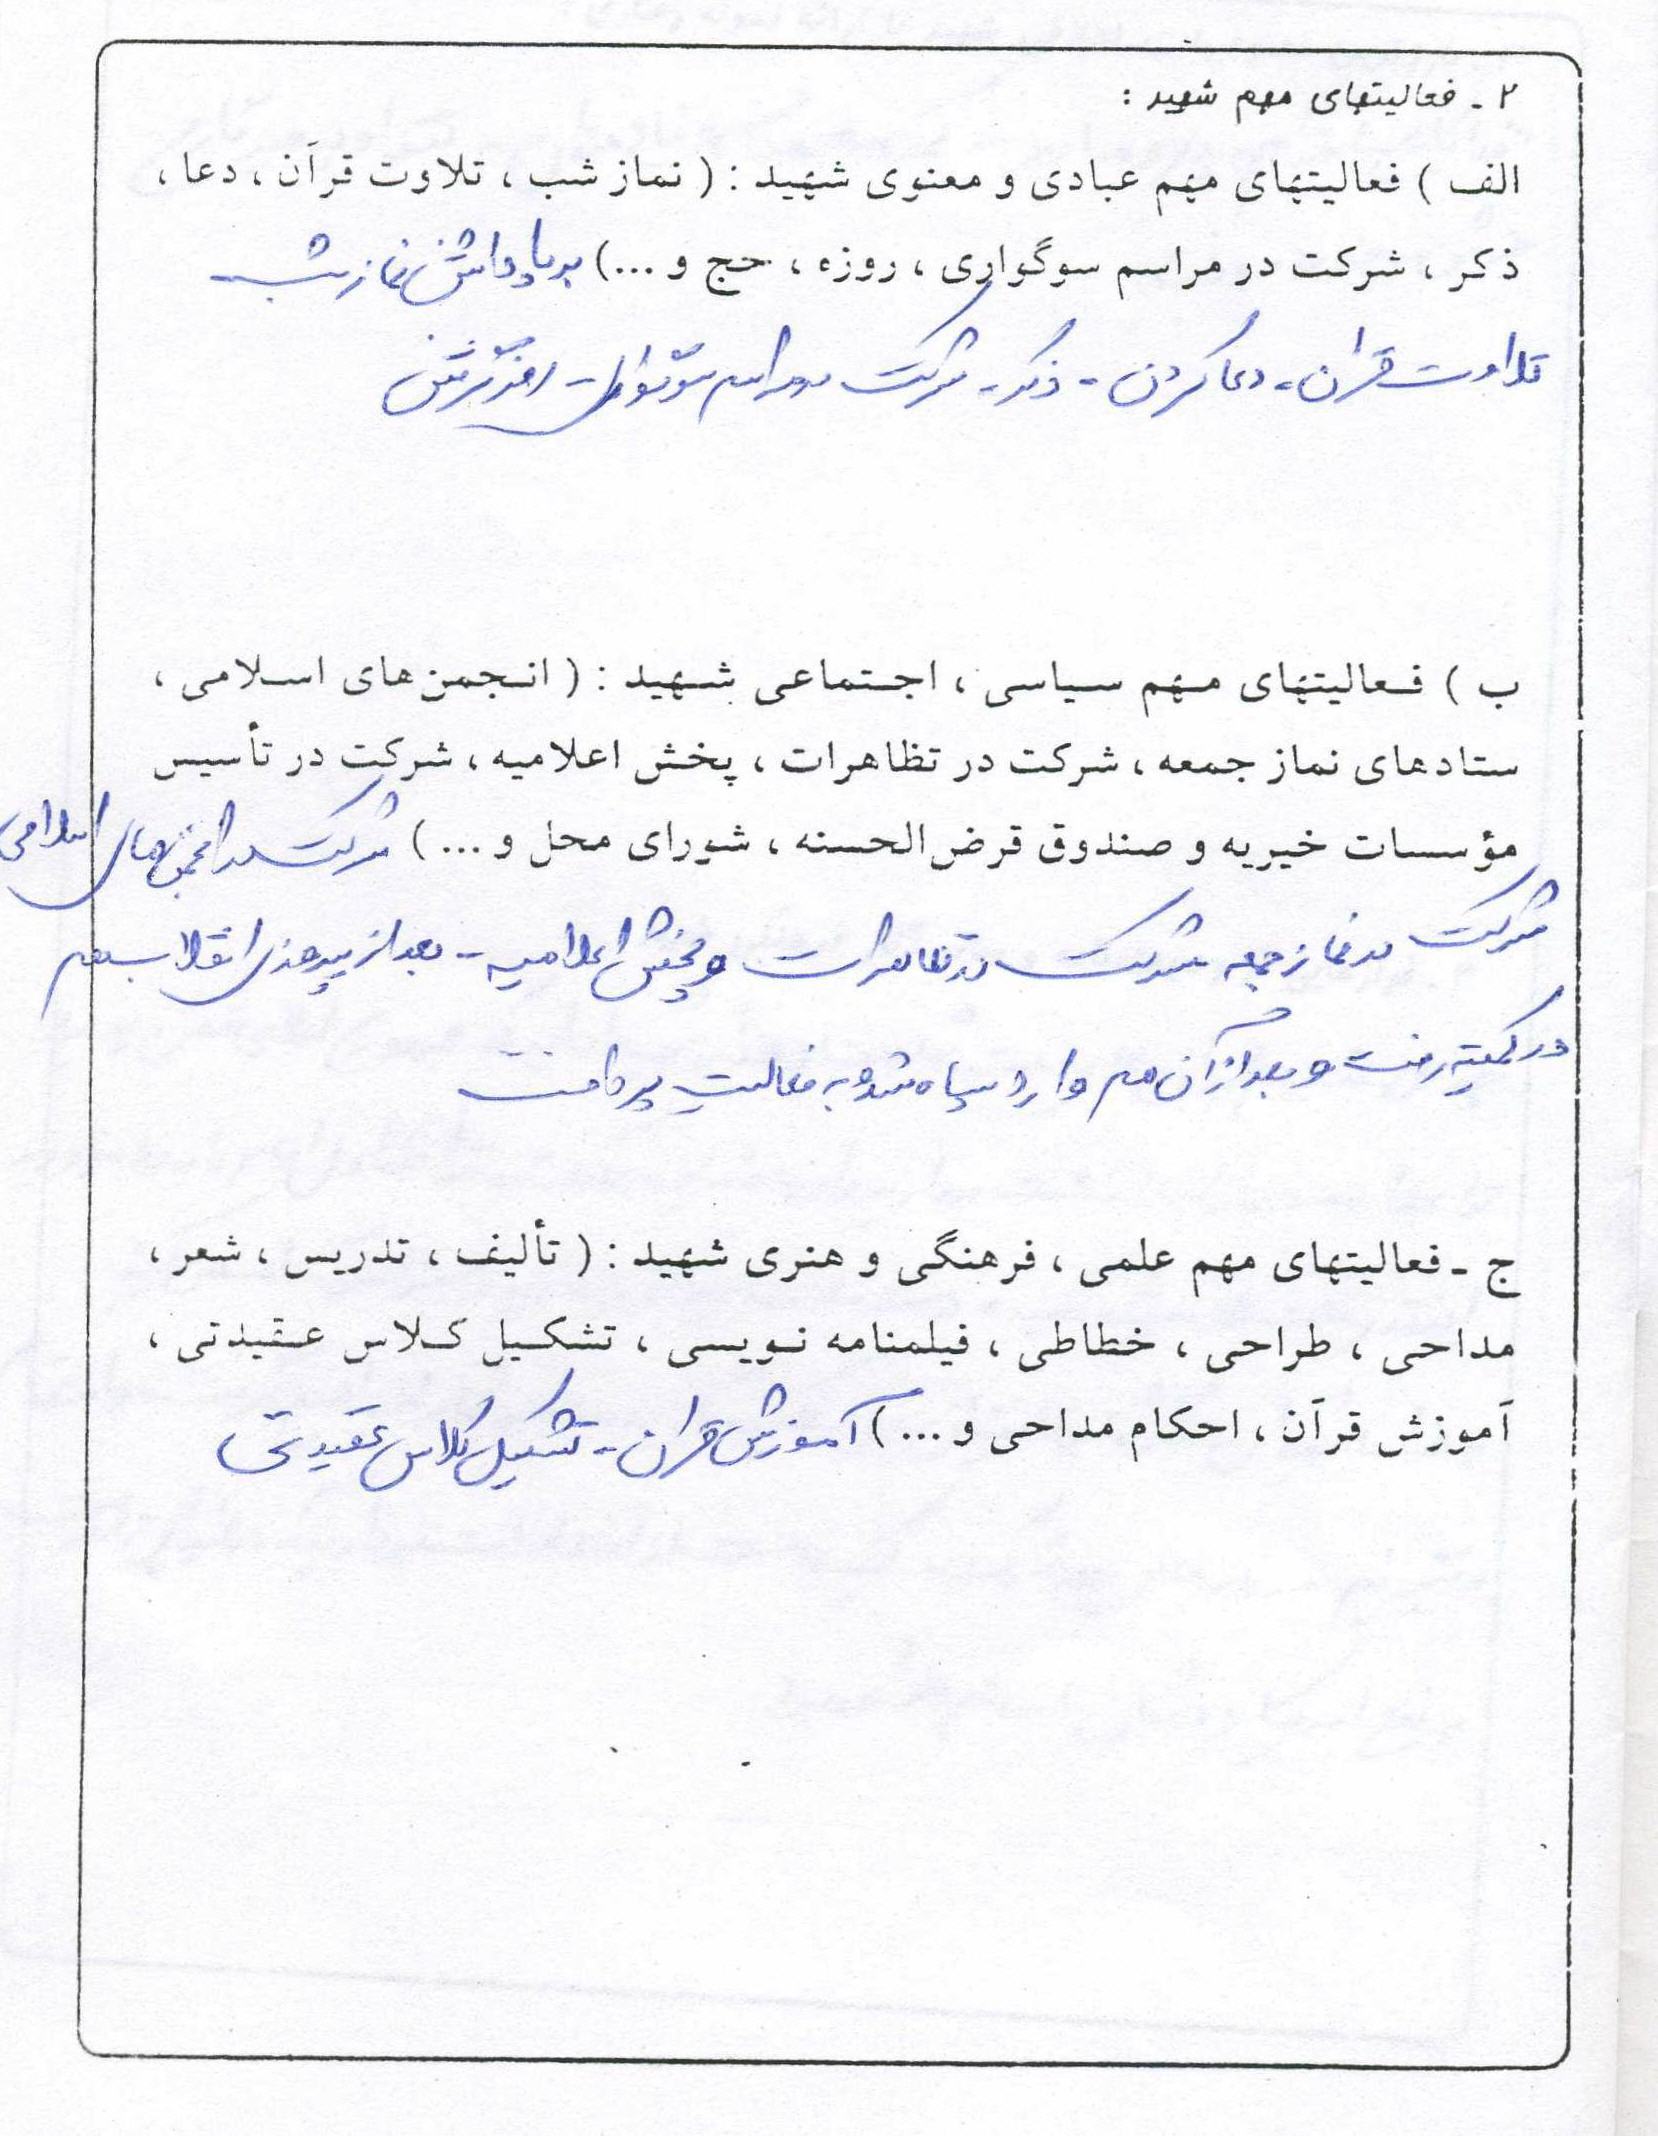 ۲ ـ فعالیتهای مهم شهید :
الف ) فعالیتهای مهم عبادی و معنوی شهید : ( نماز شب ، تلاوت قرآن ، دعا ،
ذکر ، شرکت در مراسم سوگواری ، روزه ، حج و ... ) برپا داشتن نماز شب
تلاوت قرآن - دعا کردن - ذکر - شرکت در مراسم سوگواری - روزه گرفتن
ب ) فعالیتهای مهم سیاسی ، اجتماعی شهید : ( انجمن های اسلامی ،
ستادهای نماز جمعه ، شرکت در تظاهرات ، پخش اعلامیه ، شرکت در تأسیس
مؤسسات خیریه و صندوق قرض الحسنه ، شورای محل و ... ) شرکت در انجمن های اسلامی
شرکت در نماز جمعه شرکت در تظاهرات و پخش اعلامیه - بعد از پیروزی انقلاب هم
در کمیته رفت و بعد از آن هم وارد سپاه شد و به فعالیت پرداخت
ج ـ فعالیتهای مهم علمی ، فرهنگی و هنری شهید : ( تألیف ، تدریس ، شعر ،
مداحی ، طراحی ، خطاطی ، فیلمنامه نویسی ، تشکیل کلاس عقیدتی ،
آموزش قرآن ، احکام مداحی و ... ) آموزش قرآن - تشکیل کلاس عقیدتی